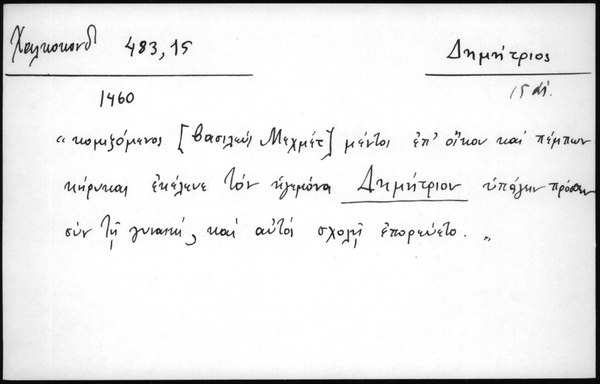 Χαλκοκονδ 483,15
Δημήτριος
1460
15 αἰ.
" κομιζόμενος [βασιλεὺς Μεχμέτ] μέντοι ἐπ' οἴκου καὶ πέμπων
κήρυκας ἐκέλευε τὸν ἡγεμόνα Δημήτριον ὑπάγειν πρόσω
σὺν τῇ γυναικί, καὶ αὐτὸς σχολῇ ἐπορεύετο. "